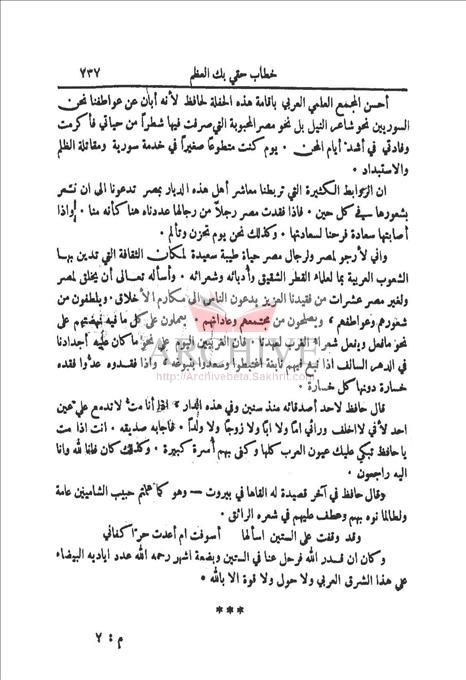 خطاب حقي بك العظم
٧٣٧
أحسن المجمع العلمي العربي باقامة هذه الحفلة لحافظ لأنه أبان عن عواطفنا نحن
السوريين نحو شاعر النيل بل نحو مصر المحبوبة التي صرفت فيها شطراً من حياتي فأكرمت
وفادتي في أشد أيام المحن . يوم كنت متطوعاً صغيراً في خدمة سورية ومقاتلة الظلم
والاستبداد .
ان الروابط الكثيرة التي تربطنا معاشر أهل هذه الديار بمصر تدعونا الى ان نشعر
بشعورها في كل حين . فاذا فقدت مصر رجلاً من رجالها عددناه هنا كأنه منا . واذا
أصابتها سعادة فرحنا لسعادتها . وكذلك نحن يوم تحزن وتألم .
واني لأرجو لمصر ولرجال مصر حياة طيبة سعيدة لمكان الثقافة التي تدين بها
الشعوب العربية بما لعلماء القطر الشقيق وأدبائه وشعرائه . وأسأله تعالى أن يخلق لمصر
ولغير مصر عشرات من فقيدنا العزيز يدعون الناس الى مكارم الأخلاق . ويلطفون من
شعورهم وعواطفهم . ويصلحون من مجتمعهم وعاداتهم . يعملون على كل ما فيه نهضتهم على
نحو مافعل ويفعل شعراء الغرب لعهدنا . فان الغربيين اليوم على نحو ما كان عليه أجدادنا
في الدهر السالف اذا نبغ فيهم نابغة اغتبطوا وسعدوا بنبوغه . واذا فقدوه عدوا فقده
خسارة دونها كل خسارة .
ARCHIVE
http://Archivebeta.Sakhrit.com
قال حافظ لاحد أصدقائه منذ سنين وفي هذه الدار . اذا أنا مت لا تدمع علي عين
احد لأني لا اخلف ورائي اماً ولا اباً ولا زوجاً ولا ولداً . فأجابه صديقه . انت اذا مت
يا حافظ تبكي عليك عيون العرب كلها وكفى بهم أسرة كبيرة . وكذلك كان فانا لله وانا
اليه راجعون .
وقال حافظ في آخر قصيدة له القاها في بيروت — وهو كما علمتم حبيب الشاميين عامة
ولطالما نوه بهم وعطف عليهم في شعره الرائق .
وقد وقفت على الستين اسألها أسوفت ام أعدت حر أكفاني
وكان ان قدر الله فرحل عنا في الستين وبضعة اشهر رحمه الله عدد اياديه البيضاء
على هذا الشرق العربي ولا حول ولا قوة الا بالله .
***
م : ٢